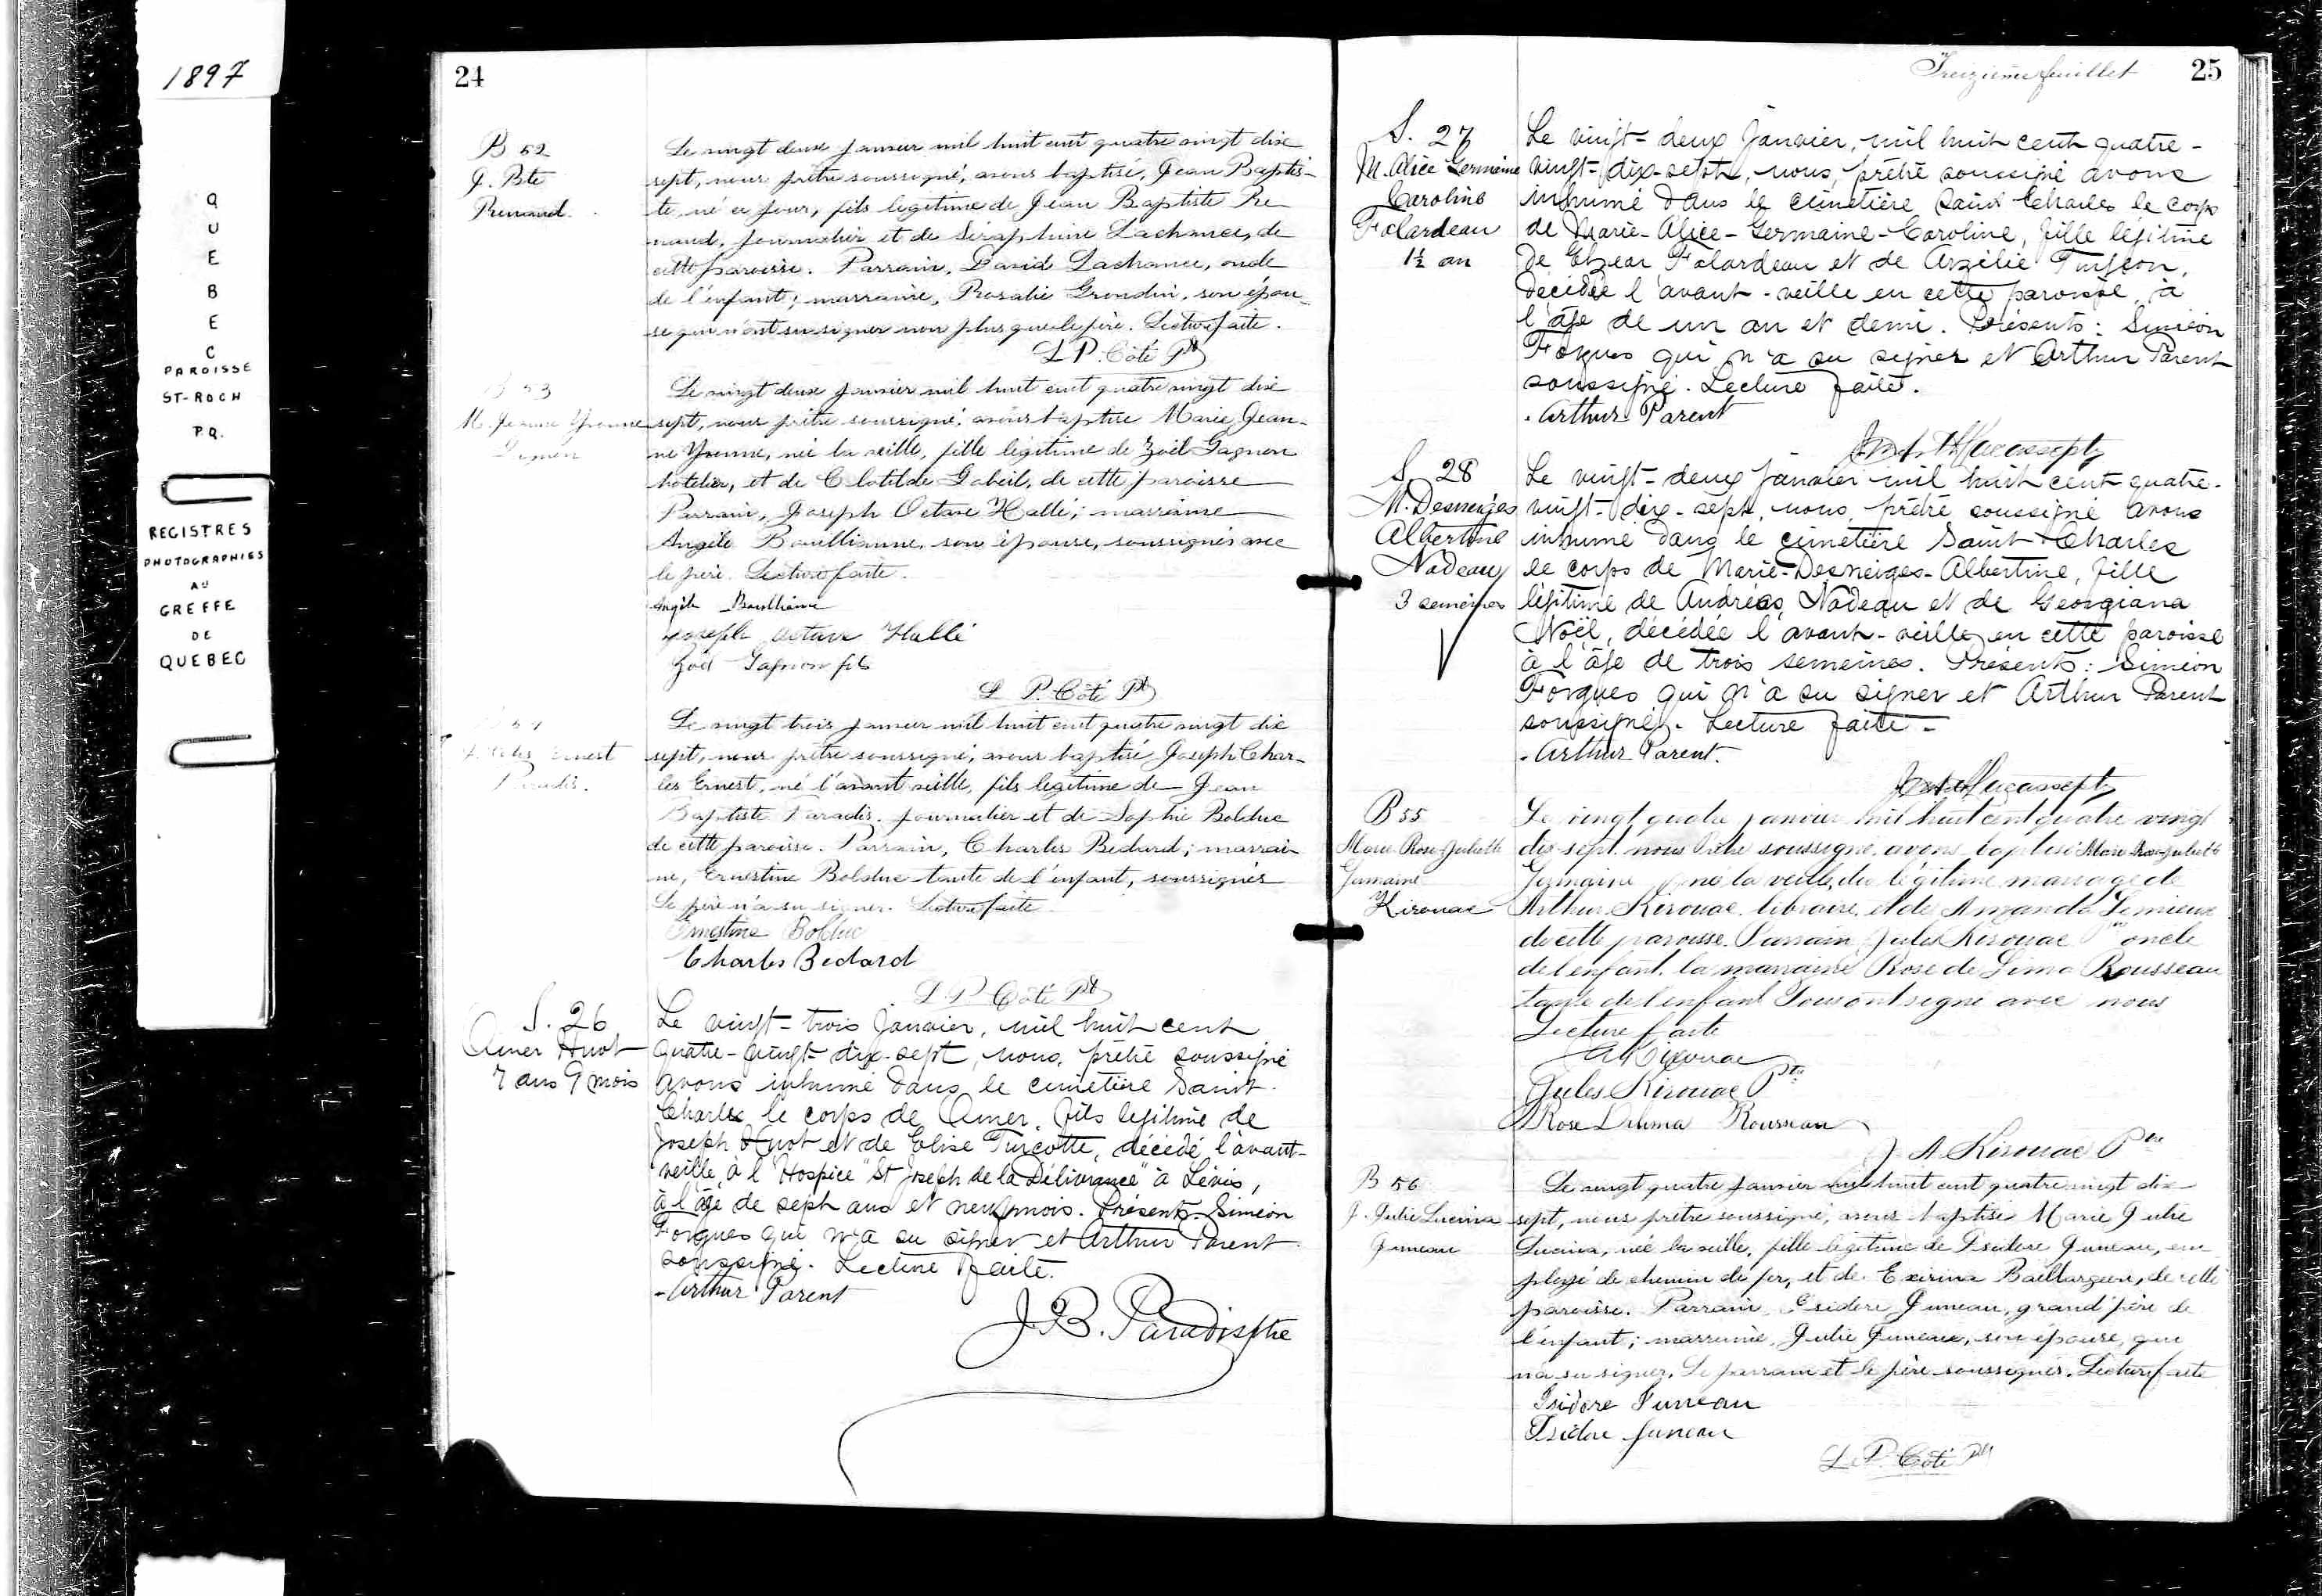 1897
QUEBEC
PAROISSE
ST-ROCH
P.Q.
REGISTRES
PHOTOGRAPHIES
AU
GREFFE
DE
QUEBEC
24
B 52
J. Bte
Renaud
Le vingt deux janvier mil huit cent quatre vingt dix
sept, nous prêtre soussigné, avons baptisé, Jean Baptis-
te, né ce jour, fils legitime de Jean Baptiste Re
naud, journalier et de Séraphine Lachance, de
cette paroisse. Parrain, David Lachance, oncle
de l'enfant; marraine, Rosalie Grondin, son épou-
se qui n'ont su signer non plus que le père. Lecture faite.
L P. Côté Ptr
B 53
M. Jeanne Yvonne
Le vingt deux janvier mil huit cent quatre vingt dix
sept, nous prêtre soussigné, avons baptisé Marie Jean-
ne Yvonne, née la veille, fille légitime de Zoël Gagnon
hôtelier, et de Clotilde, de cette paroisse
Parrain, Joseph Octave Hallé; marraine
Angèle, son épouse, soussignés avec
le père. Lecture faite.
Angèle
Joseph Octave Hallé
Zoël Gagnon fils
L P. Côté Ptr
54
Ernest
Paradis.
Le vingt trois janvier mil huit cent quatre vingt dix
sept, nous prêtre soussigné, avons baptisé Joseph Char-
les Ernest, né l'avant veille, fils legitime de Jean
Baptiste Paradis, journalier et de Sophie Bolduc
de cette paroisse. Parrain, Charles Bedard; marrai-
ne, Ernestine Bolduc tante de l'enfant, soussignés
Le père n'a su signer. Lecture faite
Ernestine Bolduc
Charles Bedard
L. P. Côté Ptr
S. 26
Omer Huot
7 ans 9 mois
Le vingt-trois Janvier, mil huit cent
quatre-vingt-dix-sept, nous, prêtre soussigné
avons inhumé dans le cimetière Saint-
Charles le corps de Omer, fils légitime de
Joseph Huot et de Elise Turcotte, décédé l'avant-
veille, à l'Hospice "St Joseph de la Délivrance" à Lévis,
à l'âge de sept ans et neuf mois. Présents: Siméon
Forgues qui n'a su signer et Arthur Parent
soussigné. Lecture faite.
- Arthur Parent
J. B. Paradis ptre
Treizième feuillet
25
S. 27
M. Alice Germaine
Caroline
Falardeau
1½ an
Le vingt-deux Janvier, mil huit cent quatre-
vingt-dix-sept, nous, prêtre soussigné avons
inhumé dans le cimetière Saint Charles le corps
de Marie-Alice-Germaine-Caroline, fille légitime
de Elzear Falardeau et de Arzélie Turgeon,
décédée l'avant-veille en cette paroisse, à
l'âge de un an et demi. Présents: Siméon
Forgues qui n'a su signer et Arthur Parent
soussigné. Lecture faite.
. Arthur Parent
S. 28
M. Desneiges
Albertine
Nadeau
3 semeines
Le vingt-deux Janvier mil huit cent quatre-
vingt-dix-sept, nous, prêtre soussigné avons
inhumé dans le cimetière Saint-Charles
le corps de Marie-Desneiges-Albertine, fille
légitime de Andréas Nadeau et de Georgiana
Noël, décédée l'avant-veille en cette paroisse
à l'âge de trois semeines. Présents: Siméon
Forgues qui n'a su signer et Arthur Parent
soussigné. Lecture faite -
. Arthur Parent.
B 55
Marie Rose Juliette
Germaine
Kirouac
Le vingt quatre janvier mil huit cent quatre vingt
dix-sept nous Prêtre soussigné avons baptisé Marie Rose Juliette
Germaine née la veille, du légitime mariage de
Arthur Kirouac libraire, et de Amanda Lemieux
de cette paroisse. Parrain Jules Kirouac Ptre oncle
de l'enfant, la marraine Rose de Lima Rousseau
tante de l'enfant Tous ont signé avec nous
Lecture faite
A Kirouac
Jules Kirouac Ptre
Rose Delima Rousseau
J A Kirouac Ptre
B 56
J. Julie Lucina
Juneau
Le vingt quatre janvier mil huit cent quatre vingt dix
sept, nous prêtre soussigné, avons baptisé Marie Julie
Lucina, née la veille, fille légitime de Isidore Juneau, em
ployé de chemin de fer, et de Exirina Baillargeon, de cette
paroisse. Parrain, Isidore Juneau, grand'père de
l'enfant; marraine, Julie Juneau, son épouse, qui
n'a su signer. Le parrain et le père soussignés. Lecture faite
Isidore Juneau
Isidore Juneau
L. P. Côté Ptr